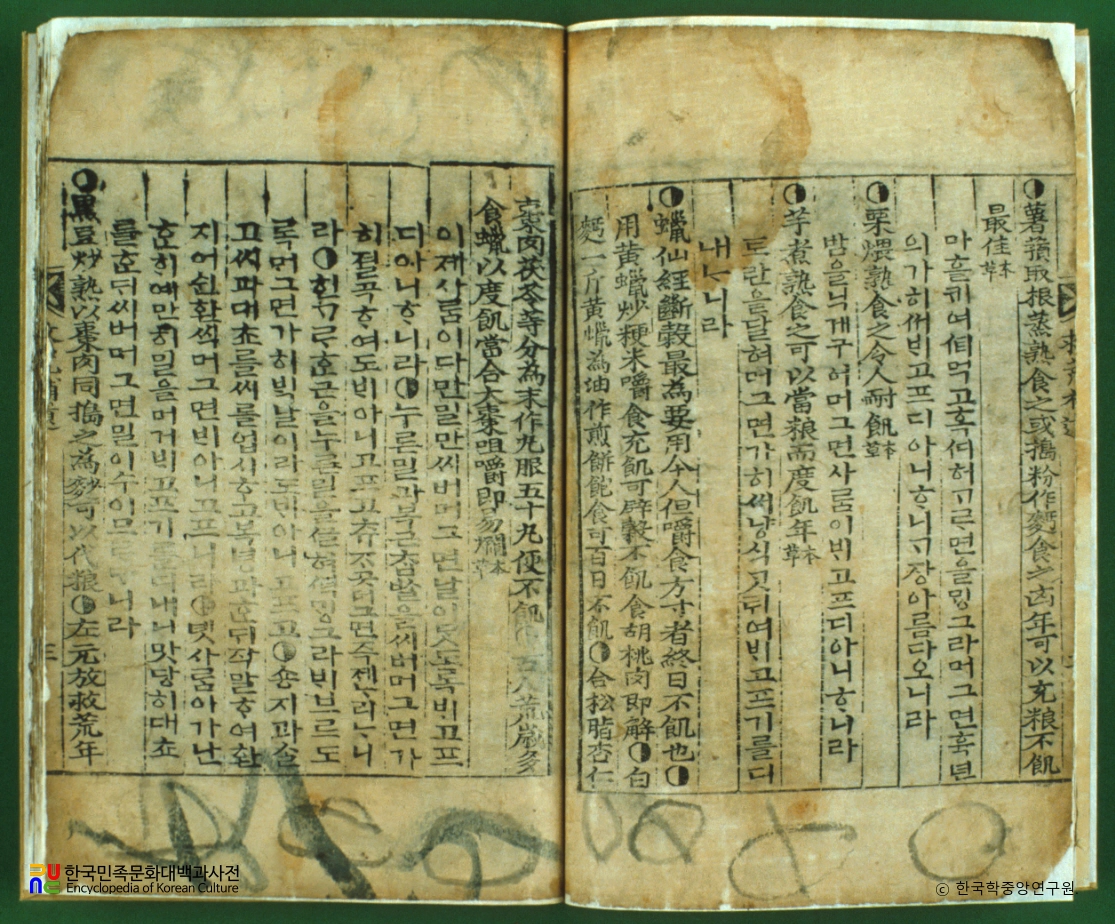 ◐薯蕷取根蒸熟食之或搗粉作麪食之凶年可以充粮不飢
最佳本草
마ᄒᆞᆯᄏᆡ여ᄠᅧ먹고혹디허ᄀᆞᄅᆞ면을ᄆᆡᆼ그라머그면흉년
의가히ᄡᅥᄇᆡ고프디아니ᄒᆞ니ᄀᆞ장아름다오니라
◐栗煨熟食之令人耐飢本草
밤을닉게구어머그면사ᄅᆞᆷ이ᄇᆡ고프디아니ᄒᆞᄂᆞ니라
◐芋煮熟食之可以當粮而度飢年本草
토란을달혀머그면가히ᄡᅥ냥식ᄀᆞᆺᄒᆞ여ᄇᆡ고프기를디
내ᄂᆞ니라
◐蠟仙經斷穀最爲要用今人但嚼食方寸者終日不飢也◐
用黃蠟炒粳米嚼食充飢可辟穀不飢食胡桃肉即解◐白
麪一斤黃蠟為油作煎餠飽食可百日不飢◐合松脂杏仁
棗肉茯苓等分為末作丸服五十丸便不飢 荒歲多
食蠟以度飢當合大棗咀嚼即易爛本草
이제사ᄅᆞᆷ이다만밀만ᄡᅵ버머그면날이ᄆᆞᆺ도록ᄇᆡ고프
디아니ᄒᆞ니라◐누른밀과복근ᄎᆞᆸᄡᆞᆯ을ᄡᅵ버머그면가
히졀곡ᄒᆞ여도ᄇᆡ아니고프고 머그면즉제ᄂᆞ리ᄂᆞ니
라◐ᄒᆡᆫᄀᆞᄅᆞᄒᆞᆫ근을누른밀을 ᄆᆡᆼ그라ᄇᆡ브르도
록머그면가히ᄇᆡᆨ날이라도ᄇᆡ아니고프고◐숑지과ᄉᆞᆯ
고ᄡᅵ과대쵸를ᄡᅵ를업시ᄒᆞ고복녕과ᄒᆞᆫᄃᆡ작말ᄒᆞ여환
지어쉰환식머그면ᄇᆡ아니고프니라◐녯사ᄅᆞᆷ이가난
ᄒᆞᆫᄒᆡ예만히밀을머거ᄇᆡ고프기ᄅᆞᆯ디내니맛당히대쵸
를ᄒᆞᆫᄃᆡᄡᅵ버머그면밀이수이 니라
◐黑豆炒熟以棗肉同搗之為麨可以代粮◐左元放救荒年
한국민족문화대백과사전
Encyclopedia of Korean Culture
ⓒ 한국학중앙연구원